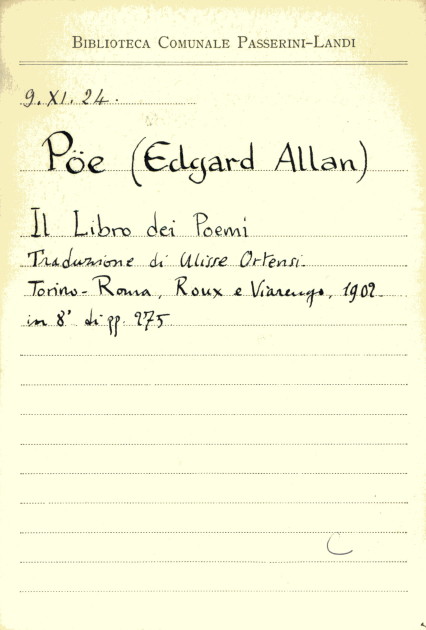 BIBLIOTECA COMUNALE PASSERINI-LANDI
9. XI. 24.
Pöe (Edgard Allan)
Il Libro dei Poemi
Traduzione di Ulisse Ortensi.
Torino - Roma, Roux e Viarengo, 1902
in 8° di pp. 275
C